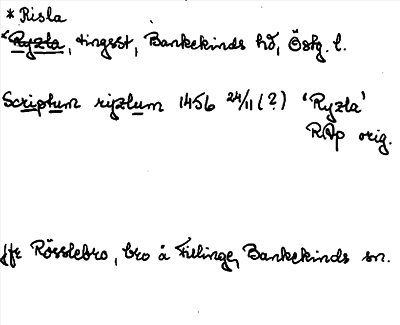 * Risla
"Ryzla, tingsst, Bankekinds hd, Östg. l.
Scriptum rizlum 1456 24/11 (?) 'Ryzla'
RAp orig.
Jfr Rösslebro, bro å Fillinge, Bankekinds sn.